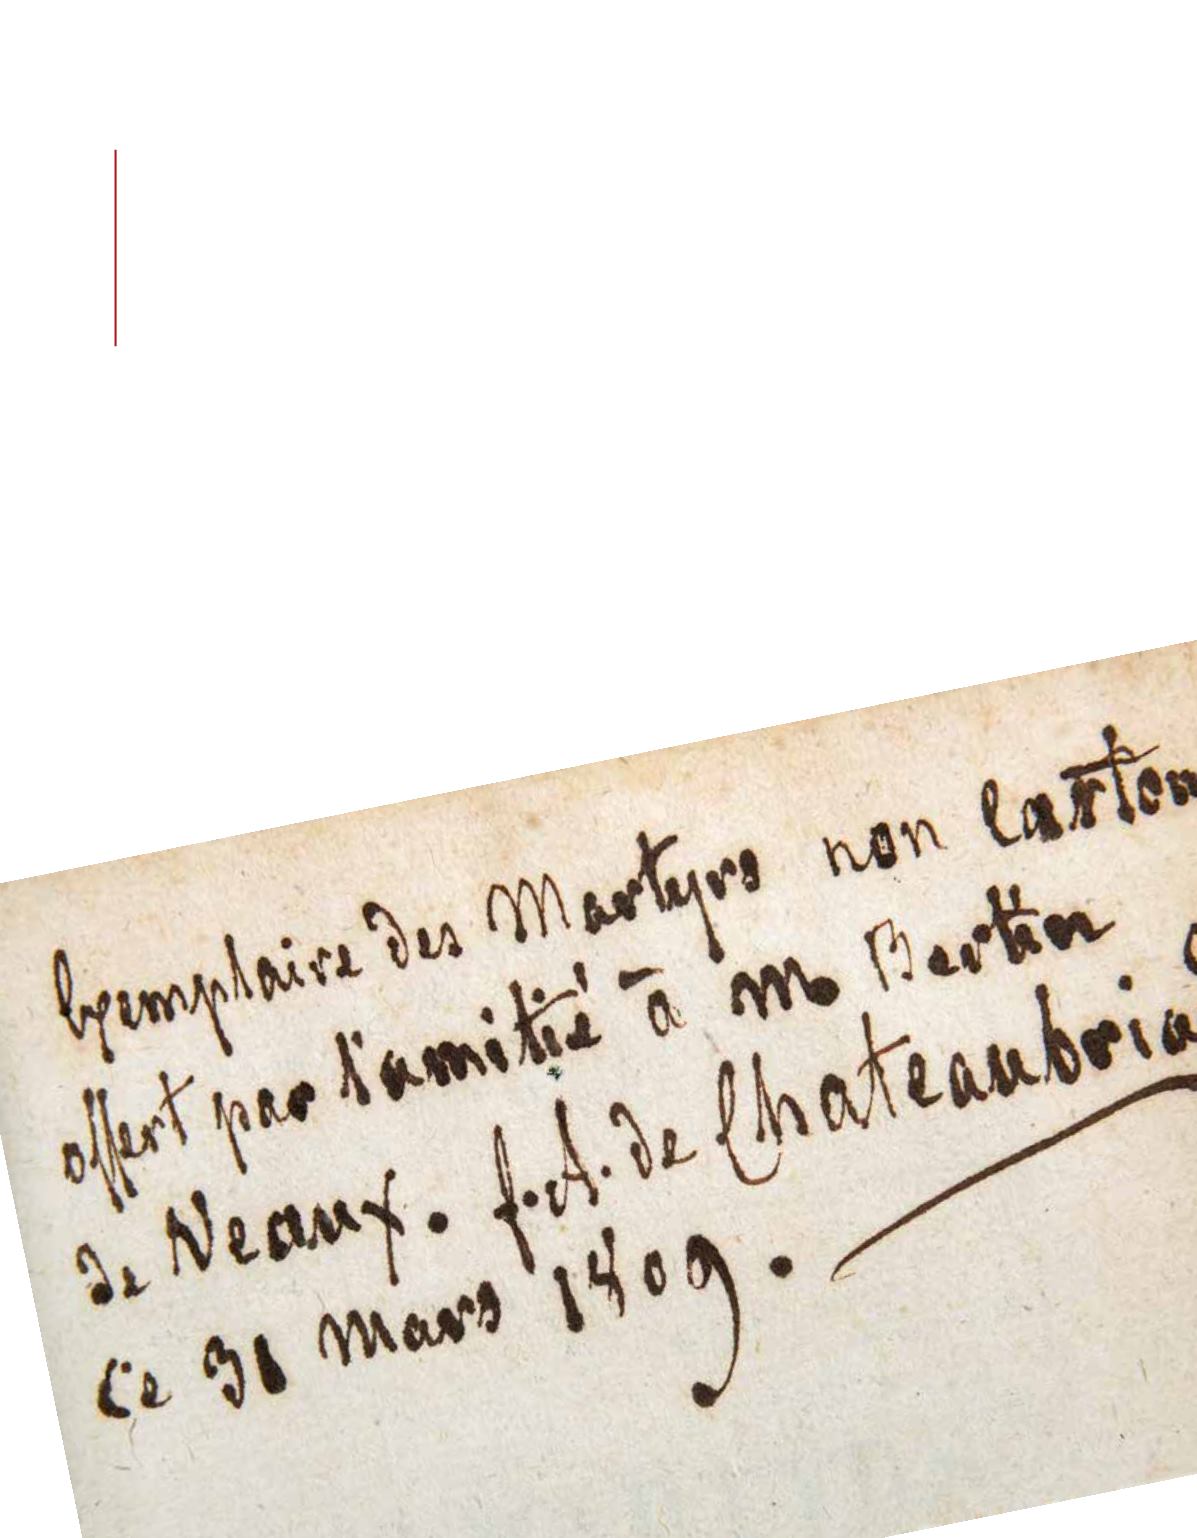 Exemplaire des Martyrs non Carton
offert par l'amitié à m. Bertin
de Veaux. f. A. de Chateaubria
Ce 31 mars 1809.